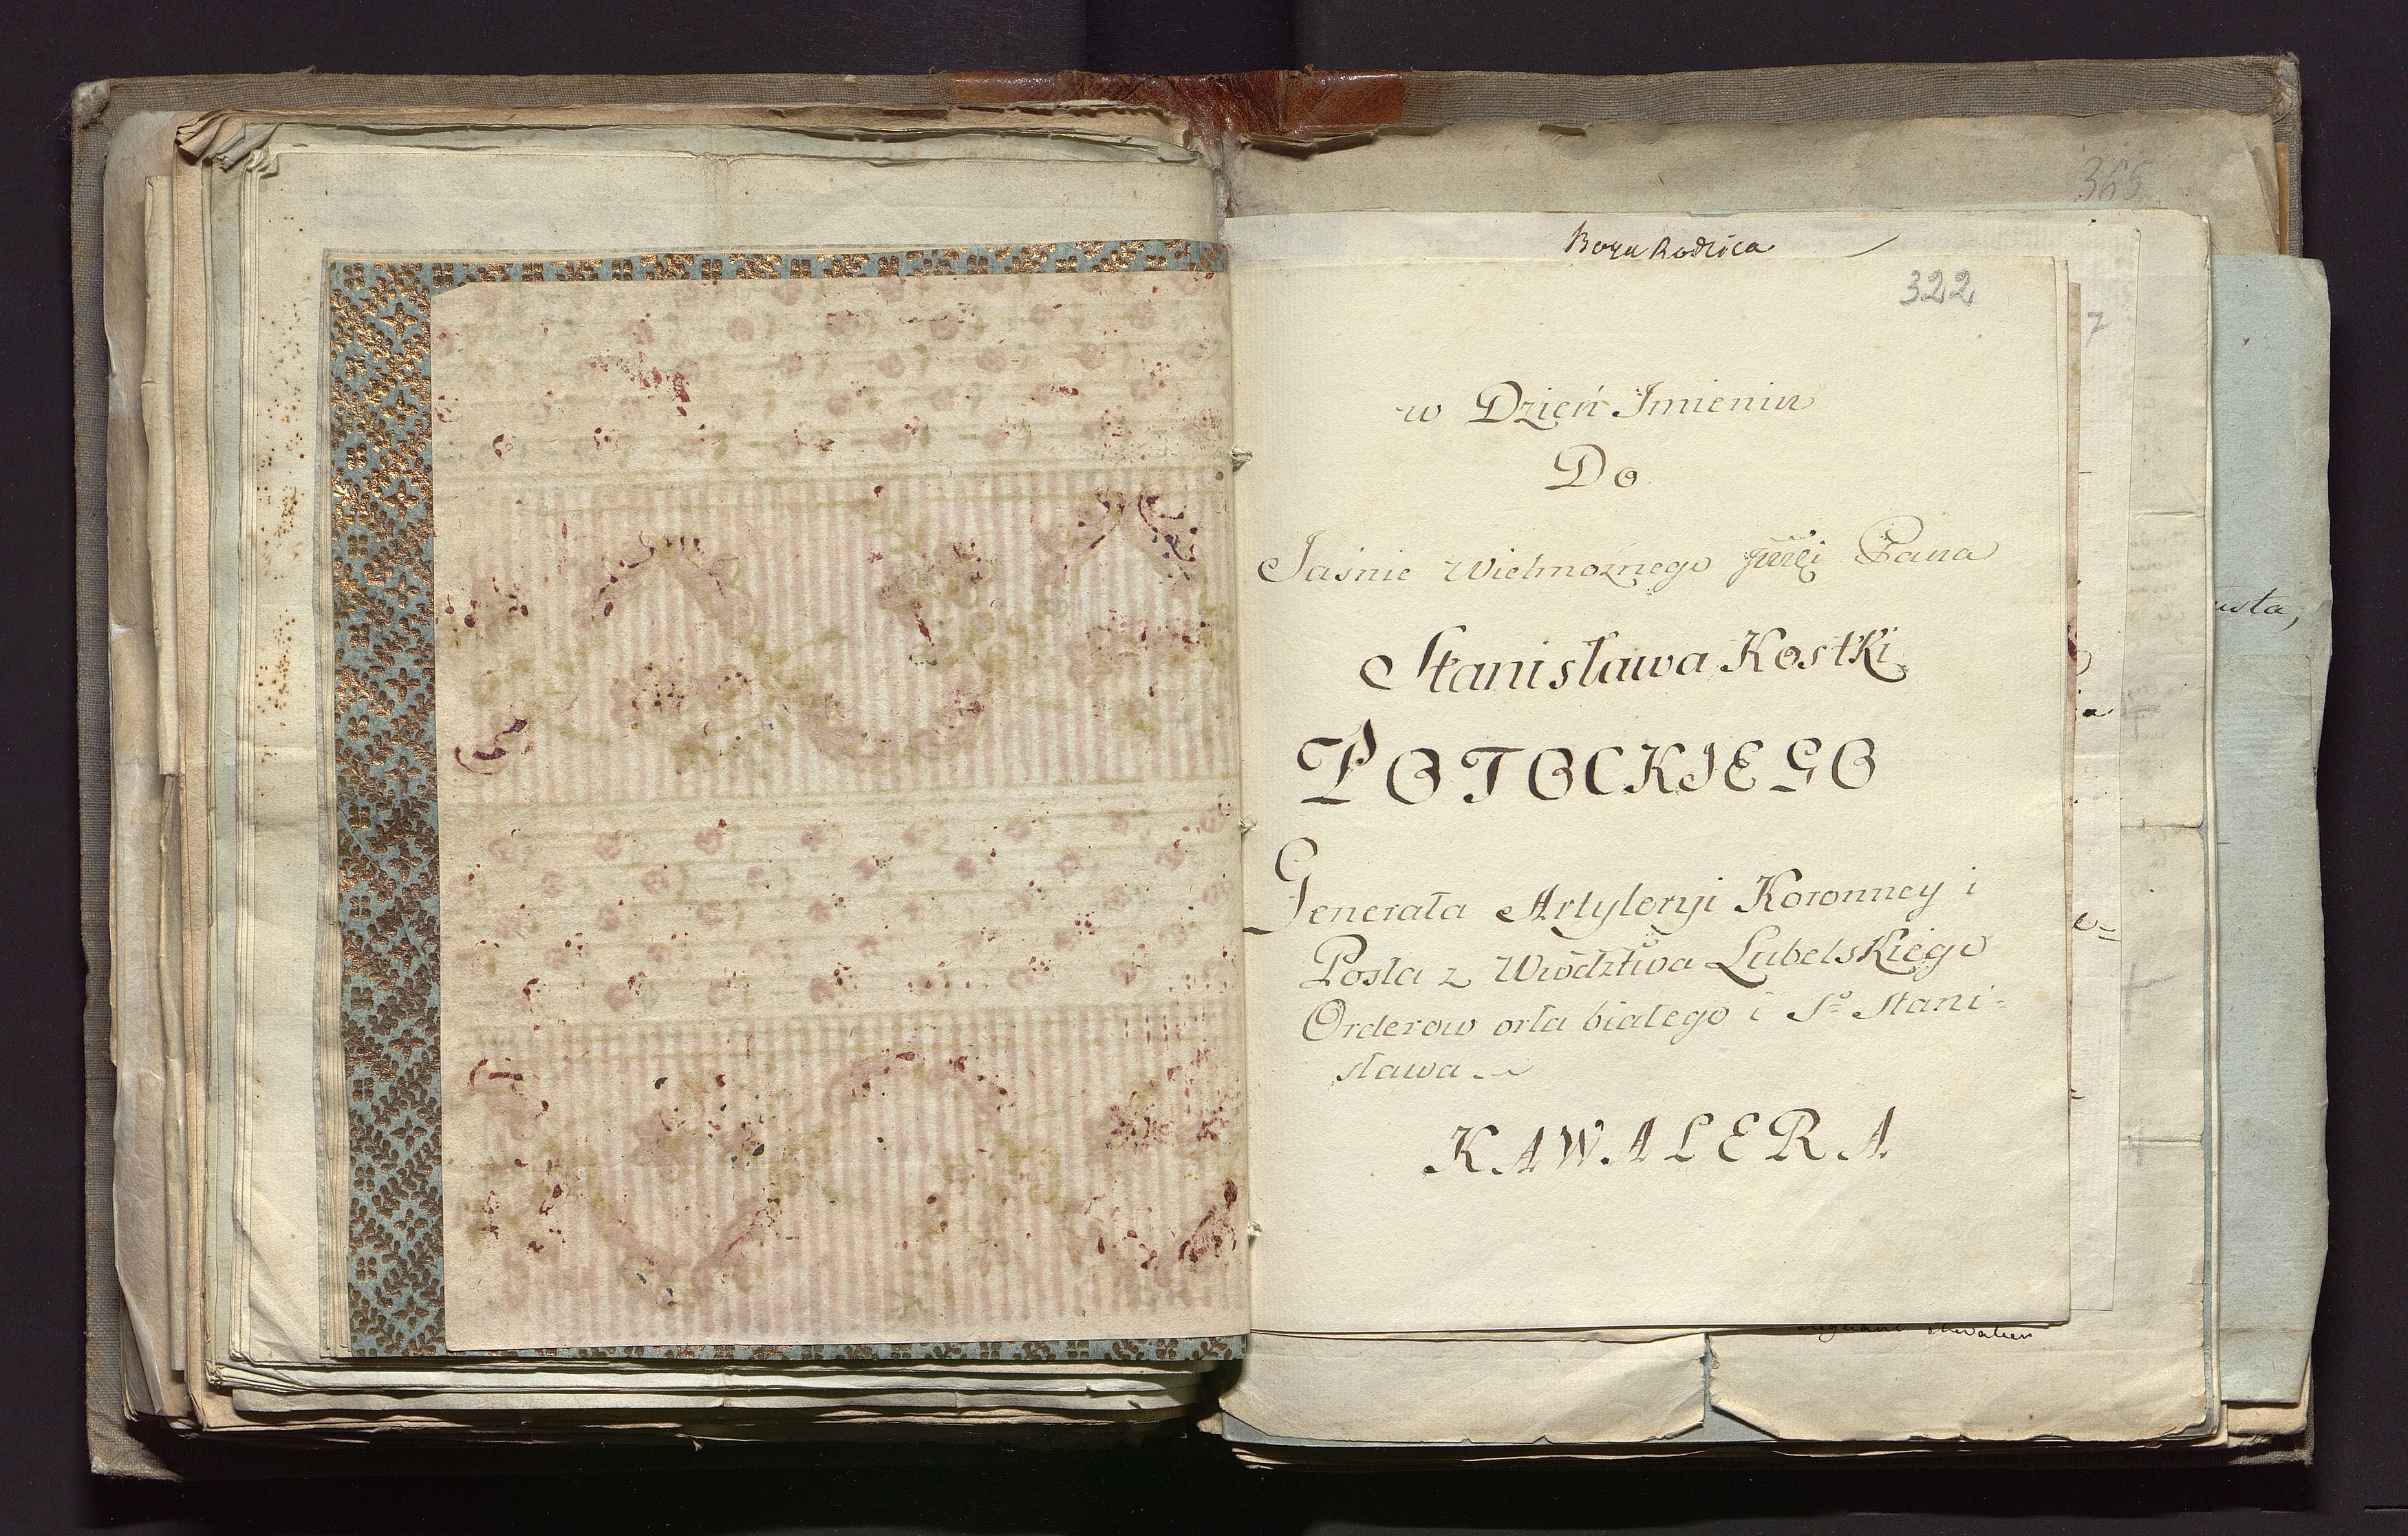 365
Boga Rodzica
322
7
w Dzień Imienin
Do
Jaśnie Wielmoznego Pana
Stanisława Kostki
POTOCKIEGO
Generała Artyleryi Koronney i
Posła z Wwdztwa Lubelskiego
Orderow orła białego i So Stani-
sława
KAWALERA